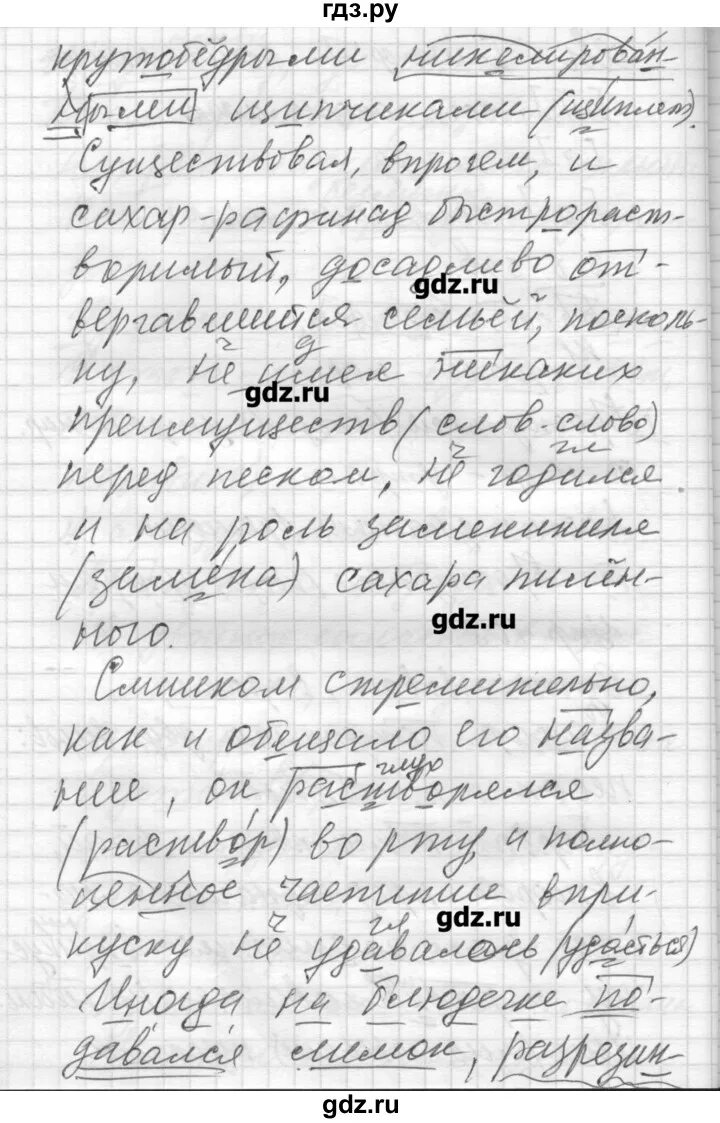 гдз.ру
кружобёдрыми никелирован-
ными щипчиками (щиплет).
Существовал, впрочем, и
сахар-рафинад быстрораст-
воримый, досадливо от-
gdz.ru
вергавшийся семьёй, посколь-
ч д
ку, не имея никаких
gdz.ru
преимуществ (слов-слово)
ч гл
перед песком, не годился
и на роль заменителя
(замена) сахара пилён-
gdz.ru
ного.
Слишком стремительно,
как и обещало его назва-
глух
ние, он растворялся
(раствор) во рту, и полно-
ценное чаепитие впри-
gdz.ru
ч гл
куску не удавалось (удасться)
Иногда на блюдечке по-
давался лимон, разрезан-
gdz.ru